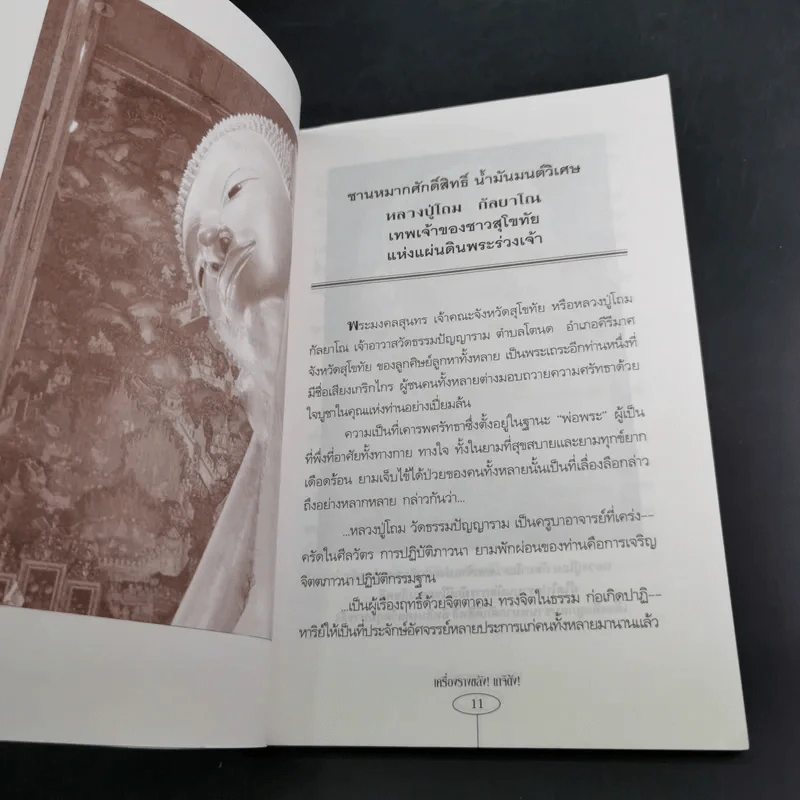 ชานหมากศักดิ์สิทธิ์ น้ำมันมนต์วิเศษ
หลวงปู่โถม กัลยาโณ
เทพเจ้าของชาวสุโขทัย
แห่งแผ่นดินพระร่วงเจ้า
พระมงคลสุนทร เจ้าคณะจังหวัดสุโขทัย หรือหลวงปู่โถม
กัลยาโณ เจ้าอาวาสวัดธรรมปัญญาราม ตำบลโตนด อำเภอคีรีมาศ
จังหวัดสุโขทัย ของลูกศิษย์ลูกหาทั้งหลาย เป็นพระเถระอีกท่านหนึ่งที่
มีชื่อเสียงเกริกไกร ผู้ชนคนทั้งหลายต่างมอบถวายความศรัทธาด้วย
ใจบูชาในคุณแห่งท่านอย่างเปี่ยมล้น
ความเป็นที่เคารพศรัทธาซึ่งตั้งอยู่ในฐานะ "พ่อพระ" ผู้เป็น
ที่พึ่งที่อาศัยทั้งทางกาย ทางใจ ทั้งในยามที่สุขสบายและยามทุกข์ยาก
เดือดร้อน ยามเจ็บไข้ได้ป่วยของคนทั้งหลายนั้นเป็นที่เลื่องลือกล่าว
ถึงอย่างหลากหลาย กล่าวกันว่า...
...หลวงปู่โถม วัดธรรมปัญญาราม เป็นครูบาอาจารย์ที่เคร่ง--
ครัดในศีลวัตร การปฏิบัติภาวนา ยามพักผ่อนของท่านคือการเจริญ
จิตตภาวนา ปฏิบัติกรรมฐาน
...เป็นผู้เรืองฤทธิ์ด้วยจิตตาคม ทรงจิตในธรรม ก่อเกิดปาฏิ--
หาริย์ให้เป็นที่ประจักษ์อัศจรรย์หลายประการแก่คนทั้งหลายมานานแล้ว
เครื่องรางขลัง! เกจิดัง!
11